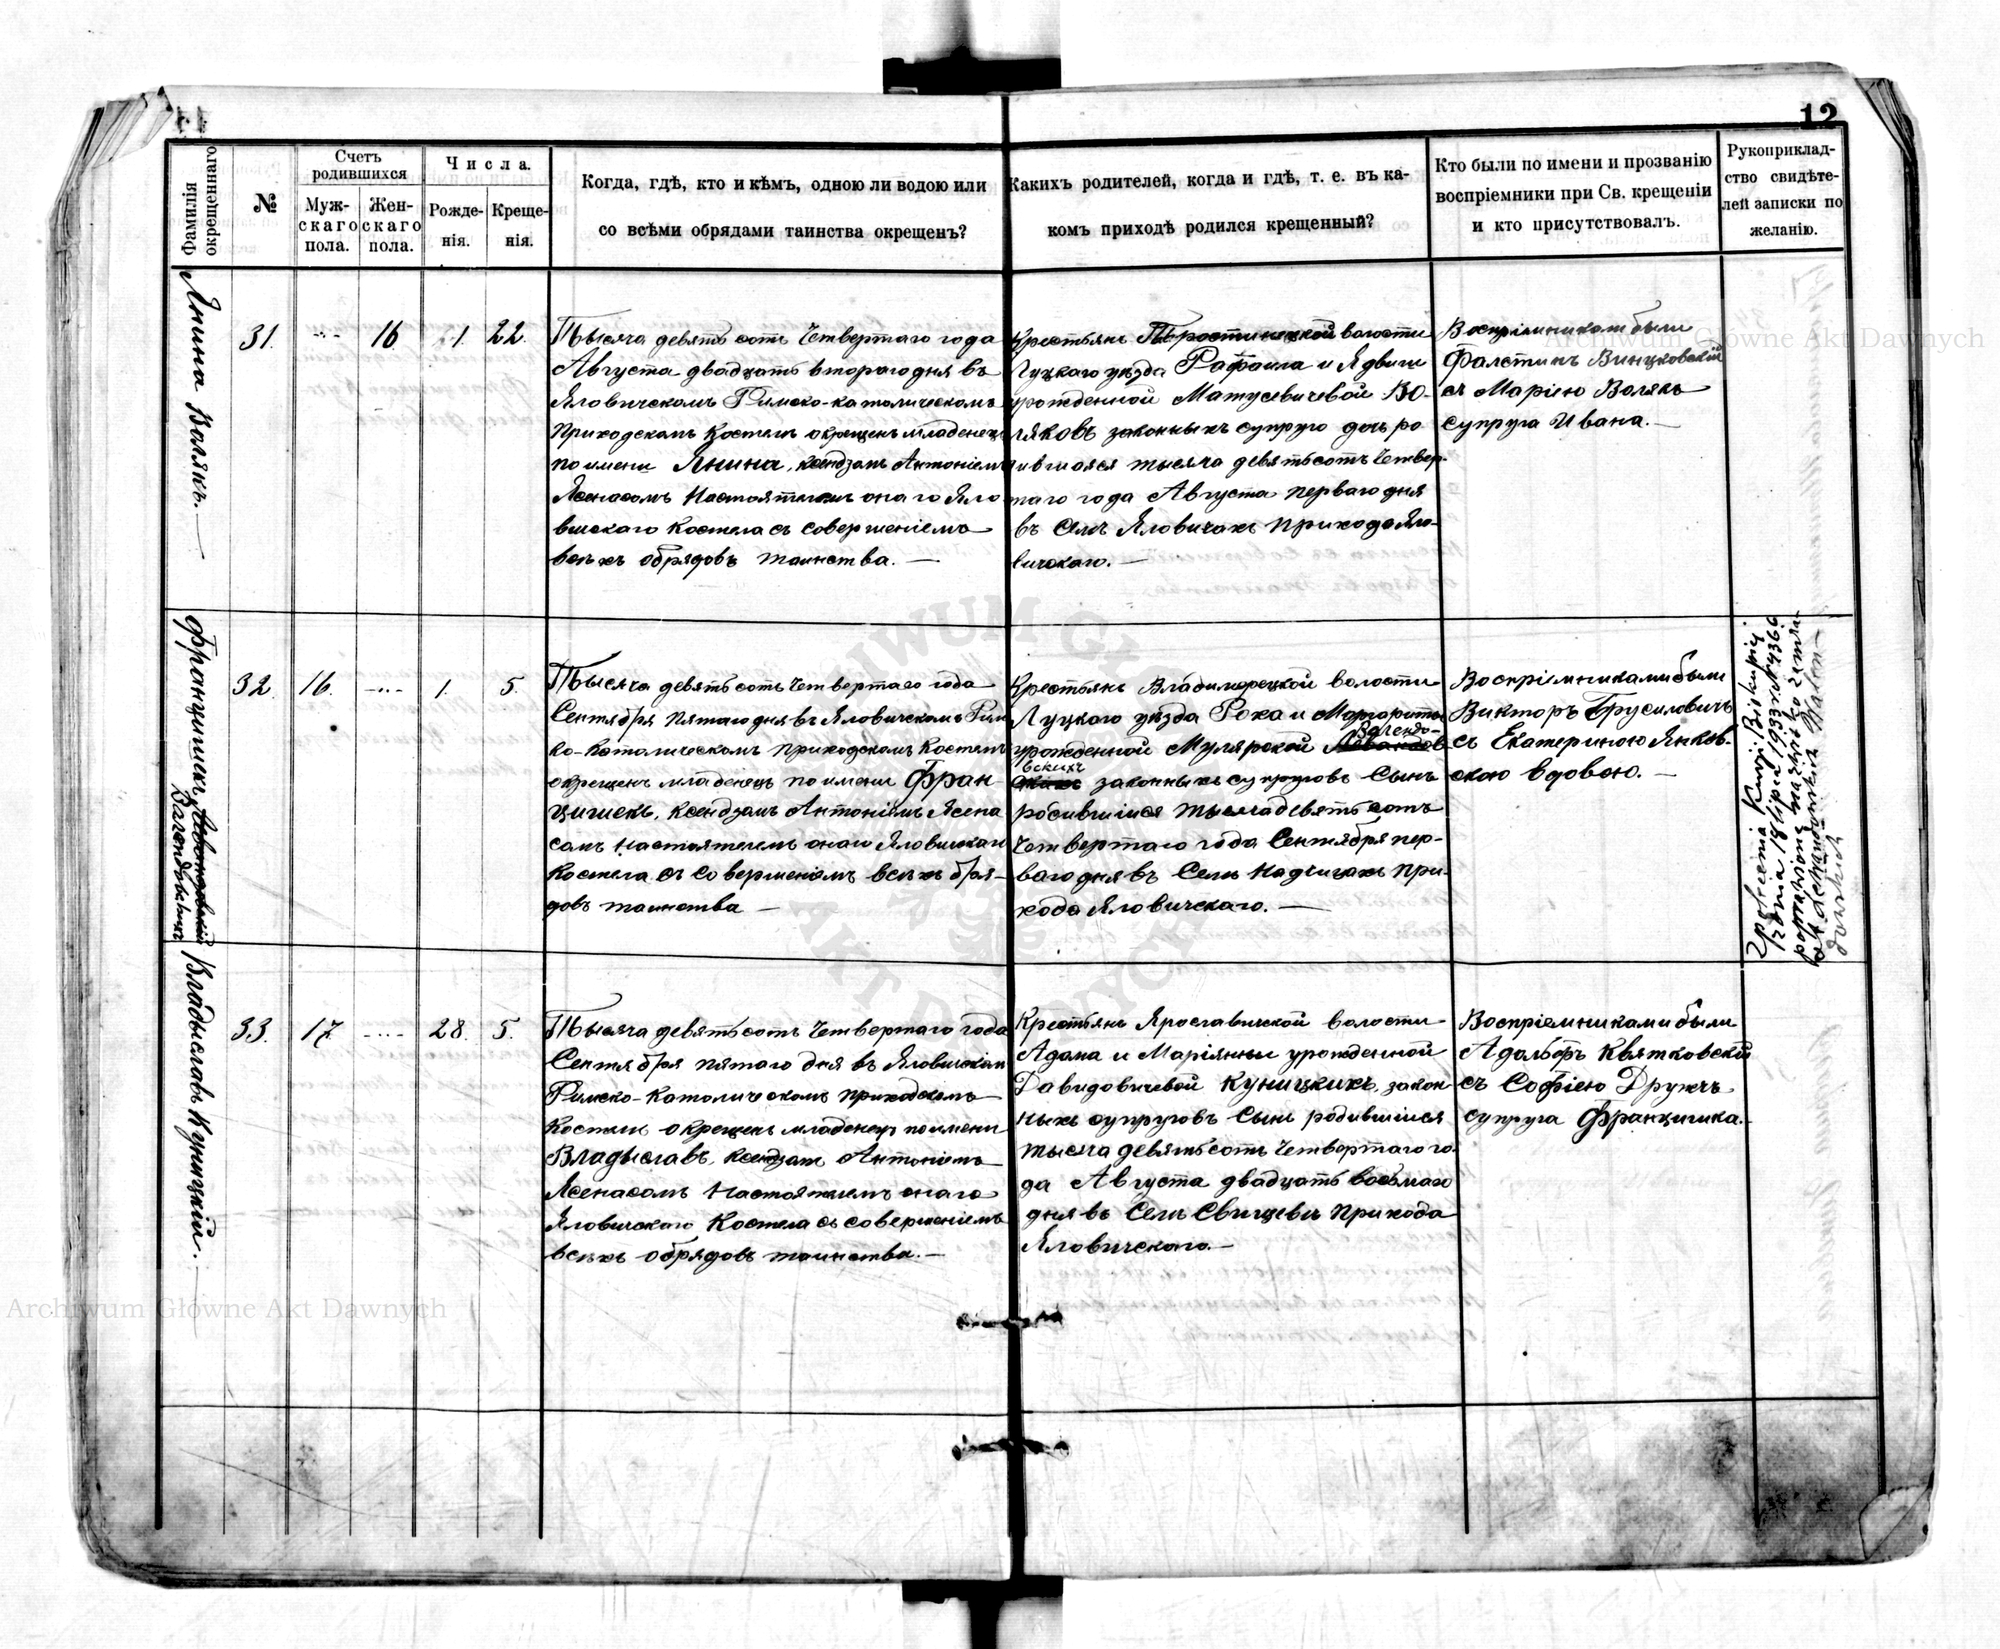 12
Фамилія окрещеннаго
№
Счетъ родившихся
Мужскаго пола.
Женскаго пола.
Числа.
Рожденія.
Крещенія.
Когда, гдѣ, кто и кѣмъ, одною ли водою или
со всѣми обрядами таинства окрещенъ?
Какихъ родителей, когда и гдѣ, т. е. въ ка-
комъ приходѣ родился крещенный?
Кто были по имени и прозванію
воспріемники при Св. крещеніи
и кто присутствовалъ.
Рукоприклад-
ство свидѣте-
лей записки по
желанію.
Янина Валякъ.
31.
16
1.
22.
Тысяча девятьсотъ четвертаго года
Августа двадцать втораго дня въ
Яловичскомъ Римско-католическомъ
приходскомъ костелѣ окрещенъ младенецъ
по имени Янина, ксендзомъ Антоніемъ
Ясенасомъ Настоятелемъ онаго Яло
вичскаго Костела съ совершеніемъ
всѣхъ обрядовъ таинства.
Крестьянъ волости
Луцкаго уѣзда Рафаила и Ядвиги
урожденной Матусевичевой Во-
ляковъ законныхъ супруго дочь ро
дившаяся тысяча девятьсотъ четвер-
таго года Августа перваго дня
въ Селѣ Яловичахъ прихода Яло-
вичскаго.
Воспріемниками были
Фалстинъ Винцковскій
съ Маріею Волякъ
супруга Ивана.
Францишекъ
Валендовскій
32.
16.
1.
5.
Тысяча девятьсотъ четвертаго года
Сентября пятаго дня въ Яловичскомъ Рим
ко-католическомъ приходскомъ костелѣ
окрещенъ младенецъ по имени Фран
цишекъ, ксендзомъ Антоніемъ Ясена
сомъ Настоятелемъ онаго Яловичскаго
Костела съ совершеніемъ всѣхъ обря-
довъ таинства
Крестьянъ Владимирецкой волости
Луцкаго уѣзда Роха и Маргариты
урожденной Мулярской Валендо-
вскихъ законныхъ супруговъ Сынъ
родившійся тысяча девятьсотъ
четвертаго года Сентября пер-
ваго дня въ Селѣ Надчицахъ При-
хода Яловичскаго.
Воспріемниками были
Викторъ Брусиловичъ
съ Екатериною Янков-
скою вдовою.
Z polecenia Kurji Biskupiej
z dnia 18 lipca 1933 r. N 4366
poprawiono nazwisko
Владыславъ Куницкій.
33.
17.
28.
5.
Тысяча девятьсотъ четвертаго года
Сентября пятаго дня въ Яловичскомъ
Римско-Католическомъ приходскомъ
Костелѣ окрещенъ младенецъ по имени
Владыславъ, ксендзомъ Антоніемъ
Ясенасомъ Настоятелемъ онаго
Яловичскаго Костела съ совершеніемъ
всѣхъ обрядовъ таинства.
Крестьянъ Ярославичской волости
Адама и Маріянны урожденной
Давидовичевой Куницкихъ, закон
ныхъ супруговъ Сынъ родившійся
тысяча девятьсотъ четвертаго го-
да Августа двадцать восьмаго
дня въ Селѣ Свищевѣ Прихода
Яловичскаго.
Воспріемниками были
Адольфъ Квятковскій
съ Софіею Дружчъ
супруга Францишка.
Archiwum Główne Akt Dawnych
Archiwum Główne Akt Dawnych
ARCHIWUM GŁÓWNE AKT DAWNYCH